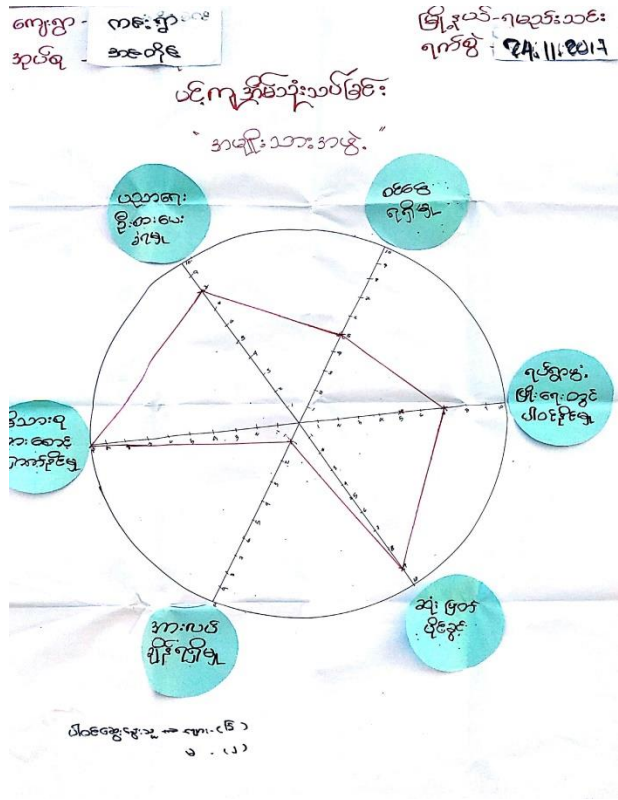 ကျေးရွာ - ကမ်းရွာ
အုပ်စု - အခတိုင်
မြို့နယ်-ရမည်းသင်း
ရက်စွဲ - 24.11.2017
ပင့်ကူအိမ်သုံးသပ်ခြင်း
"အမျိုးသားအဖွဲ့"
ပညာရေး
ဦးစားပေး
ခံရမှု
ဝင်ငွေ
ရရှိမှု
ရပ်ရွာဖွံ့
ဖြိုးရေးတွင်
ပါဝင်နိုင်မှု
ဆုံးဖြတ်
ပိုင်ခွင့်
အားလပ်
ချိန်ရရှိမှု
မိသားစု
ပါဝင်ဆွေးနွေးသူ ⇒ ကျား-(၆)
မ - (၂)